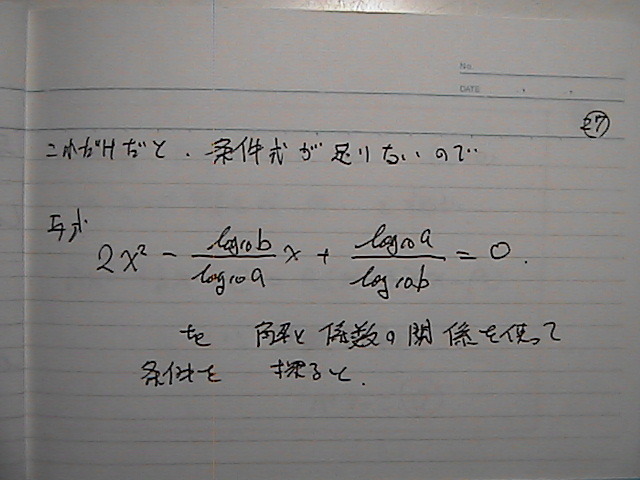 No.
DATE
これだけだと、条件式が足りないので
与式
2x² - \frac{log10b}{log10a} x + \frac{log10a}{log10b} = 0.
を 解と係数の関係を使って
条件を 探ると.